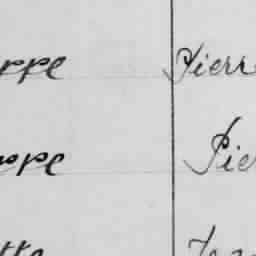 ppe Pierr
ppe Pie
tte